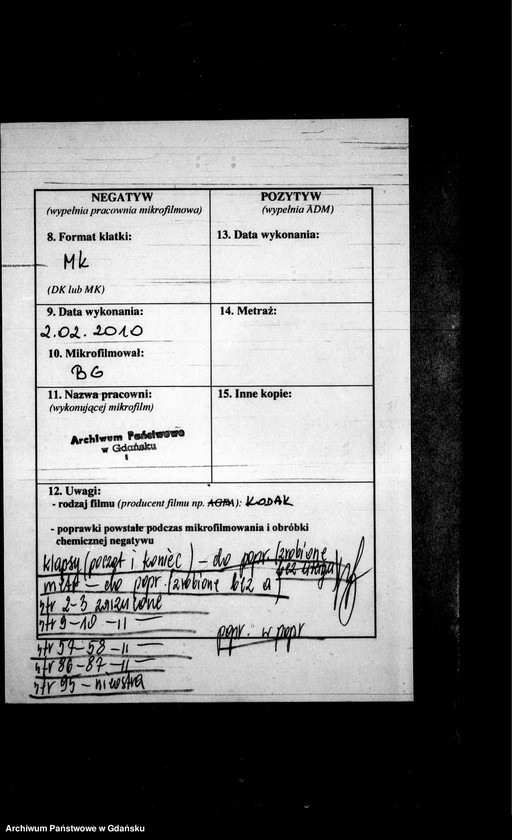 NEGATYW
(wypełnia pracownia mikrofilmowa)
POZYTYW
(wypełnia ADM)
8. Format klatki:
Mk
(DK lub MK)
13. Data wykonania:
9. Data wykonania:
2.02.2010
14. Metraż:
10. Mikrofilmował:
BG
11. Nazwa pracowni:
(wykonującej mikrofilm)
15. Inne kopie:
Archiwum Państwowe
w Gdańsku
1
12. Uwagi:
- rodzaj filmu (producent filmu np. AGFA): KODAK
- poprawki powstałe podczas mikrofilmowania i obróbki
chemicznej negatywu
klapsy (począt i koniec) - do popr. (zrobione
- do popr. (zrobione bez a)
str 2-3
str 9-10 - 11 -
popr. w popr
str 57-58 - 11 -
str 86-87 - 11 -
str 95 - nieostra
Archiwum Państwowe w Gdańsku
Archiwum Państwowe w Gdańsku